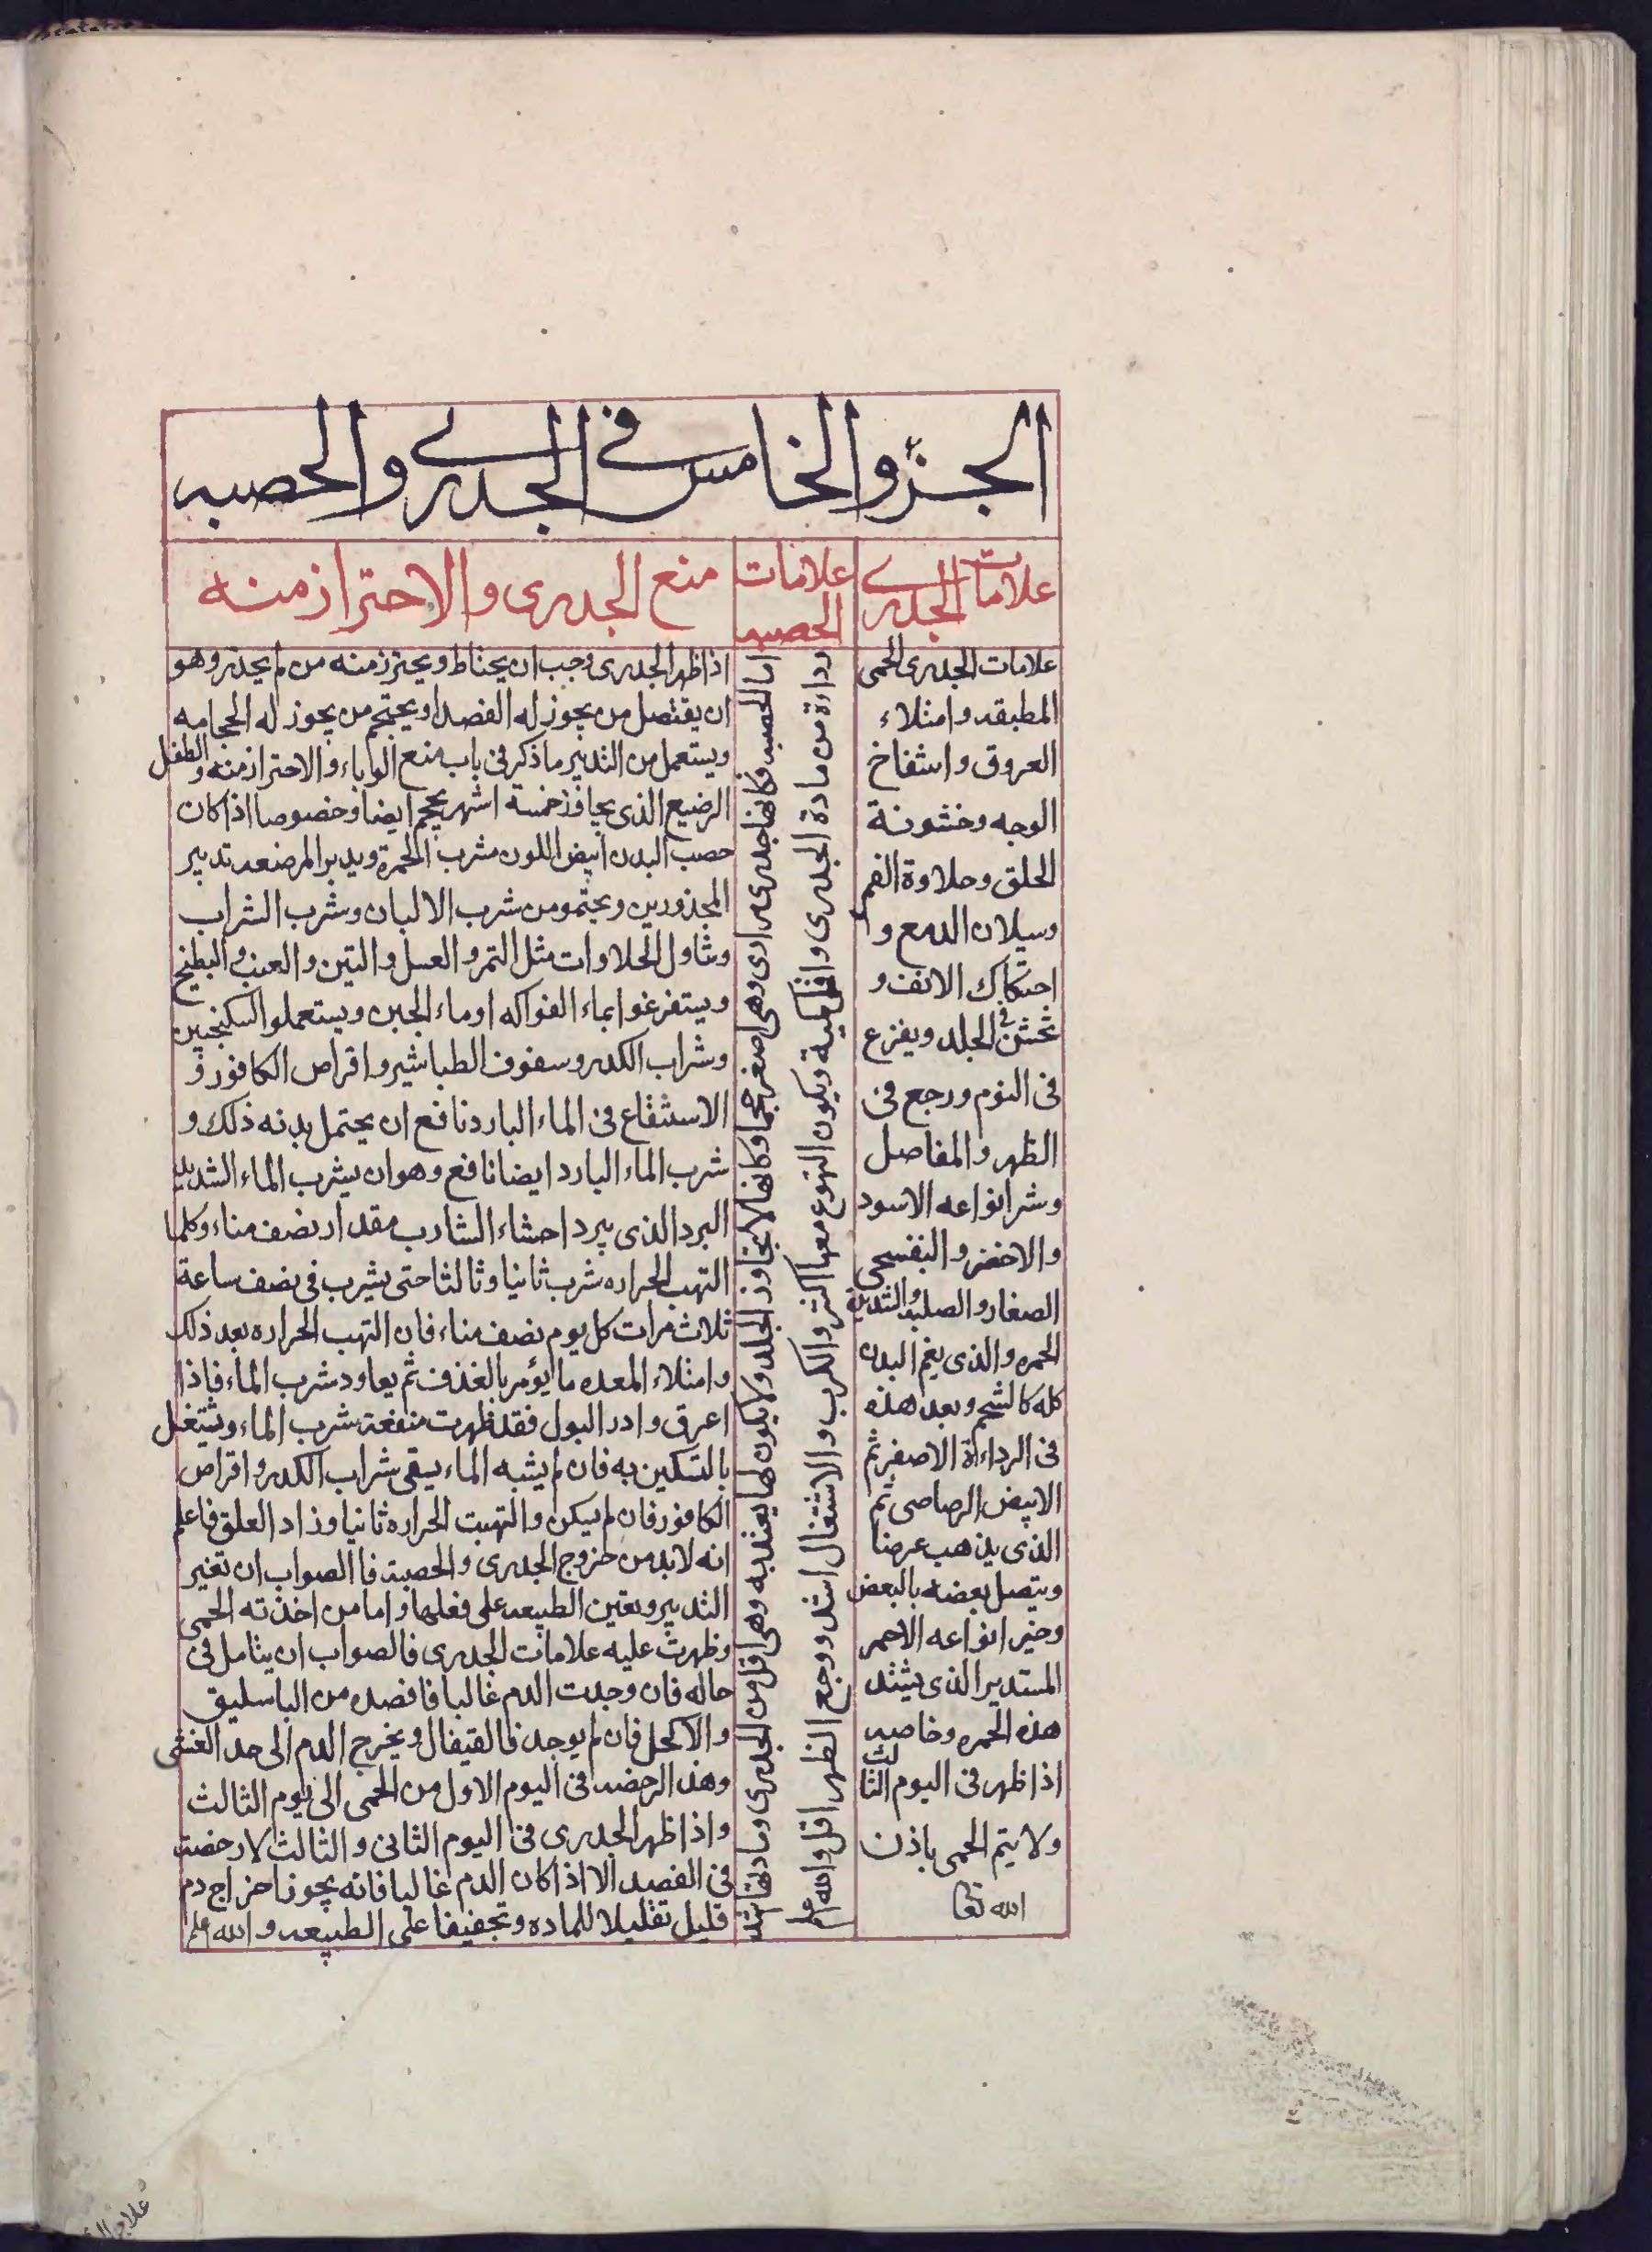 الجزؤ الخامس في الجدري والحصبه
علامات الجدري
علامات الحصبه
منع الجدرى والاحتراز منه
علامات الجدرى الحمى
المطبقه وامتلاء
العروق وانتفاخ
الوجه وخشونة
الحلق وحلاوة الفم
وسيلان الدمع و
احتكاك الانف و
تخشن فى الجلد ويفزع
فى النوم ورجع فى
الظهر والمفاصل
وشر انواعه الاسود
والاخضر والبنفسجى
الصغار والصلبه والشديدة
الحمره والذى يغم البدن
كله كالشحم وبعد هذه
فى الرداءة الاصفر ثم
الابيض الرصاصى ثم
الذى يذهب عرضا
ويتصل بعضه بالبعض
وخير انواعه الاحمر
المستدير الذى يشتد
هذه الحمره وخاصه
اذا ظهر فى اليوم الثالث
ولا يتم الحمى باذن
الله تعا
اما الحصبه فكانها جدرى مرارى وهى اصغر حجما وكانها لا تجاوز الجلد ولا يكون لها يعتد به وهى اقل من الجدرى ومادتها اشد
رداءة من مادة الجدرى واقل كمية ويكون التهوع معها اكثر والكرب والاشتغال اشد ووجع الظهر اقل والله اعلم
اذا ظهر الجدرى وجب ان يحتاط ويحترز منه من لم يجدر وهو
ان يفتصل من يجوز له الفصد او يحتجم من يجوز له الحجامه
ويستعمل من التدبير ما ذكر فى باب منع الوباء والاحتراز منه والطفل
الرضيع الذى يجاوز خمسة اشهر يحجم ايضا وخصوصا اذا كان
خصب البدن ابيض اللون مشرب الحمرة ويدبر المرضعه تدبير
المجذورين ويحتمو من شرب الالبان وشرب الشراب
وتناول الحلاوات مثل التمر والعسل والتين والعنب والبطيخ
ويستفرغوا بماء الفواكه او ماء الجبن ويستعملوا السكنجبين
وشراب الكدر وسفوف الطباشير واقراص الكافور و
الاستنقاع فى الماء البارد نافع ان يحتمل بدنه ذلك و
شرب الماء البارد ايضا نافع وهو ان يشرب الماء الشديد
البرد الذى يبرد احشاء الشارب مقدار نصف مناء وكلما
التهب الحراره شرب ثانيا وثالثا حتى يشرب فى نصف ساعة
ثلاث مرات كل يوم نصف مناء فان التهب الحراره بعد ذلك
وامتلاء المعده ما يؤمر بالغذف ثم يعاود شرب الماء فاذا
اعرق وادر البول فقد ظهرت منفعة شرب الماء ويشتغل
بالتسكين به فان لم يشبه الماء يسقى شراب الكدر واقراص
الكافور فان لم يسكن والتهبت الحراره ثانيا وزاد العلق فاعلم
انه لابد من خروج الجدرى والحصبة فا الصواب ان تغير
التدبير وتعين الطبيعه على فعلها واما من اخذته الحمى
وظهرت عليه علامات الجدرى فالصواب ان يتامل فى
حاله فان وجدت الدم غالبا فافصده من الباسليق
والاكحل فان لم يوجد فالقيفال ويخرج الدم الى حد الغشى
وهذا الرخصه فى اليوم الاول من الحمى الى يوم الثالث
واذا ظهر الجدرى فى اليوم الثانى والثالث لا رخصة
فى الفصد الا اذا كان الدم غالبا فانه يجوز اخراج دم
قليل تقليلا للماده وتجفيفا على الطبيعه والله اعلم